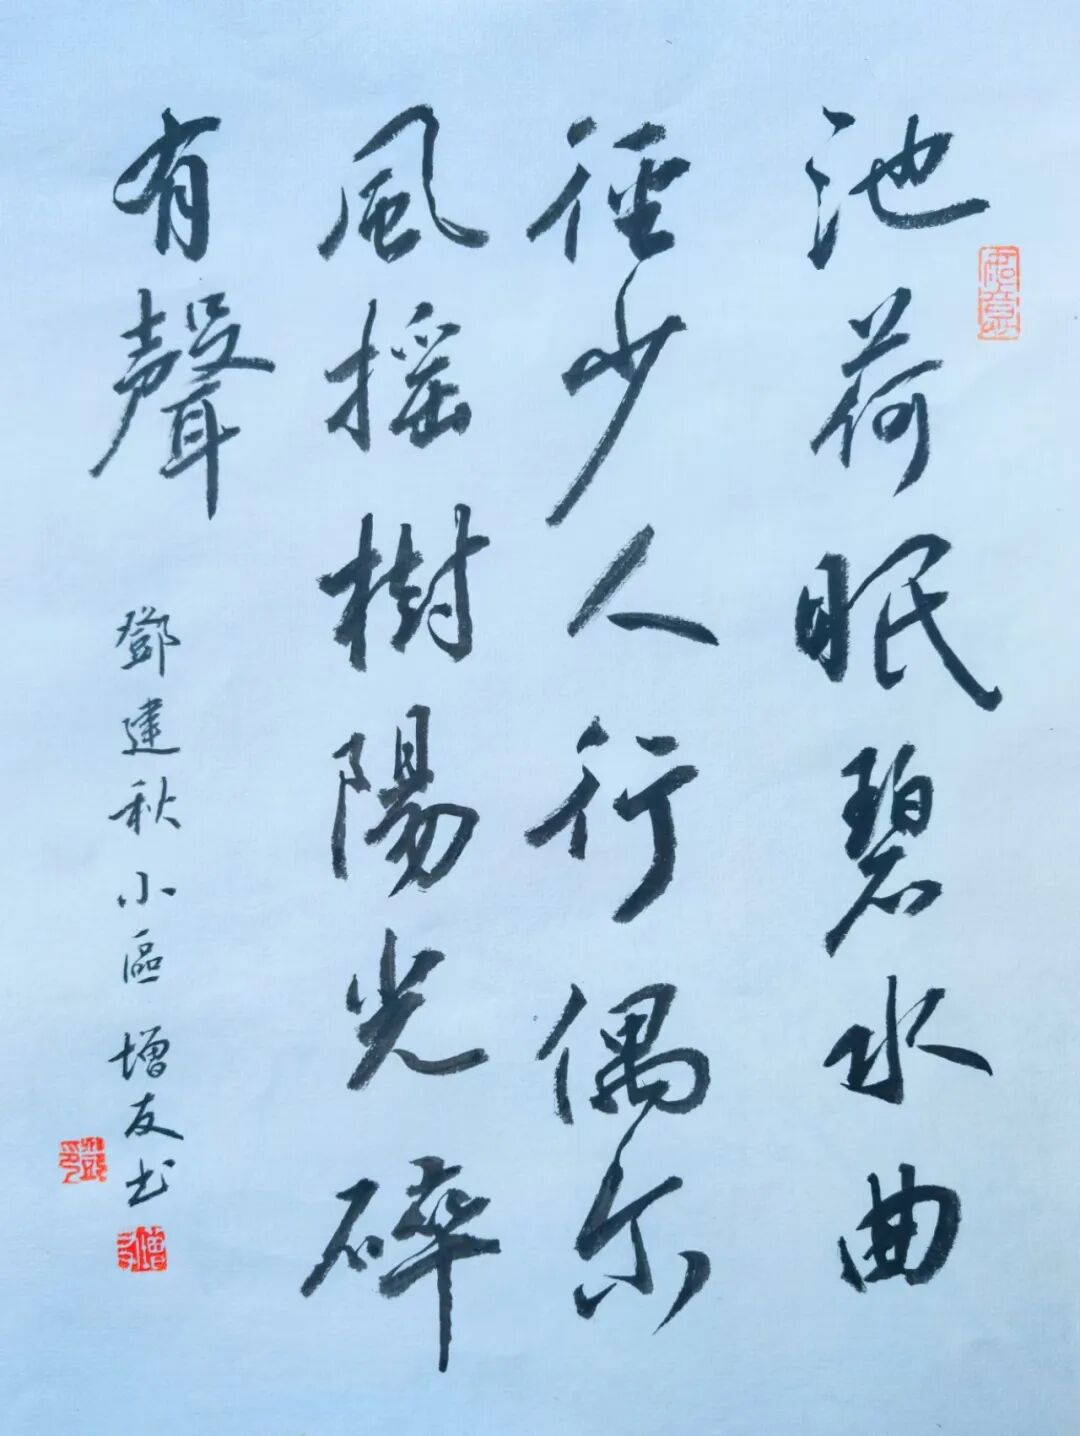 池荷眠碧水曲
徑少人行偶尔
風摇樹陽光碎
有聲
鄧建秋小區增友书